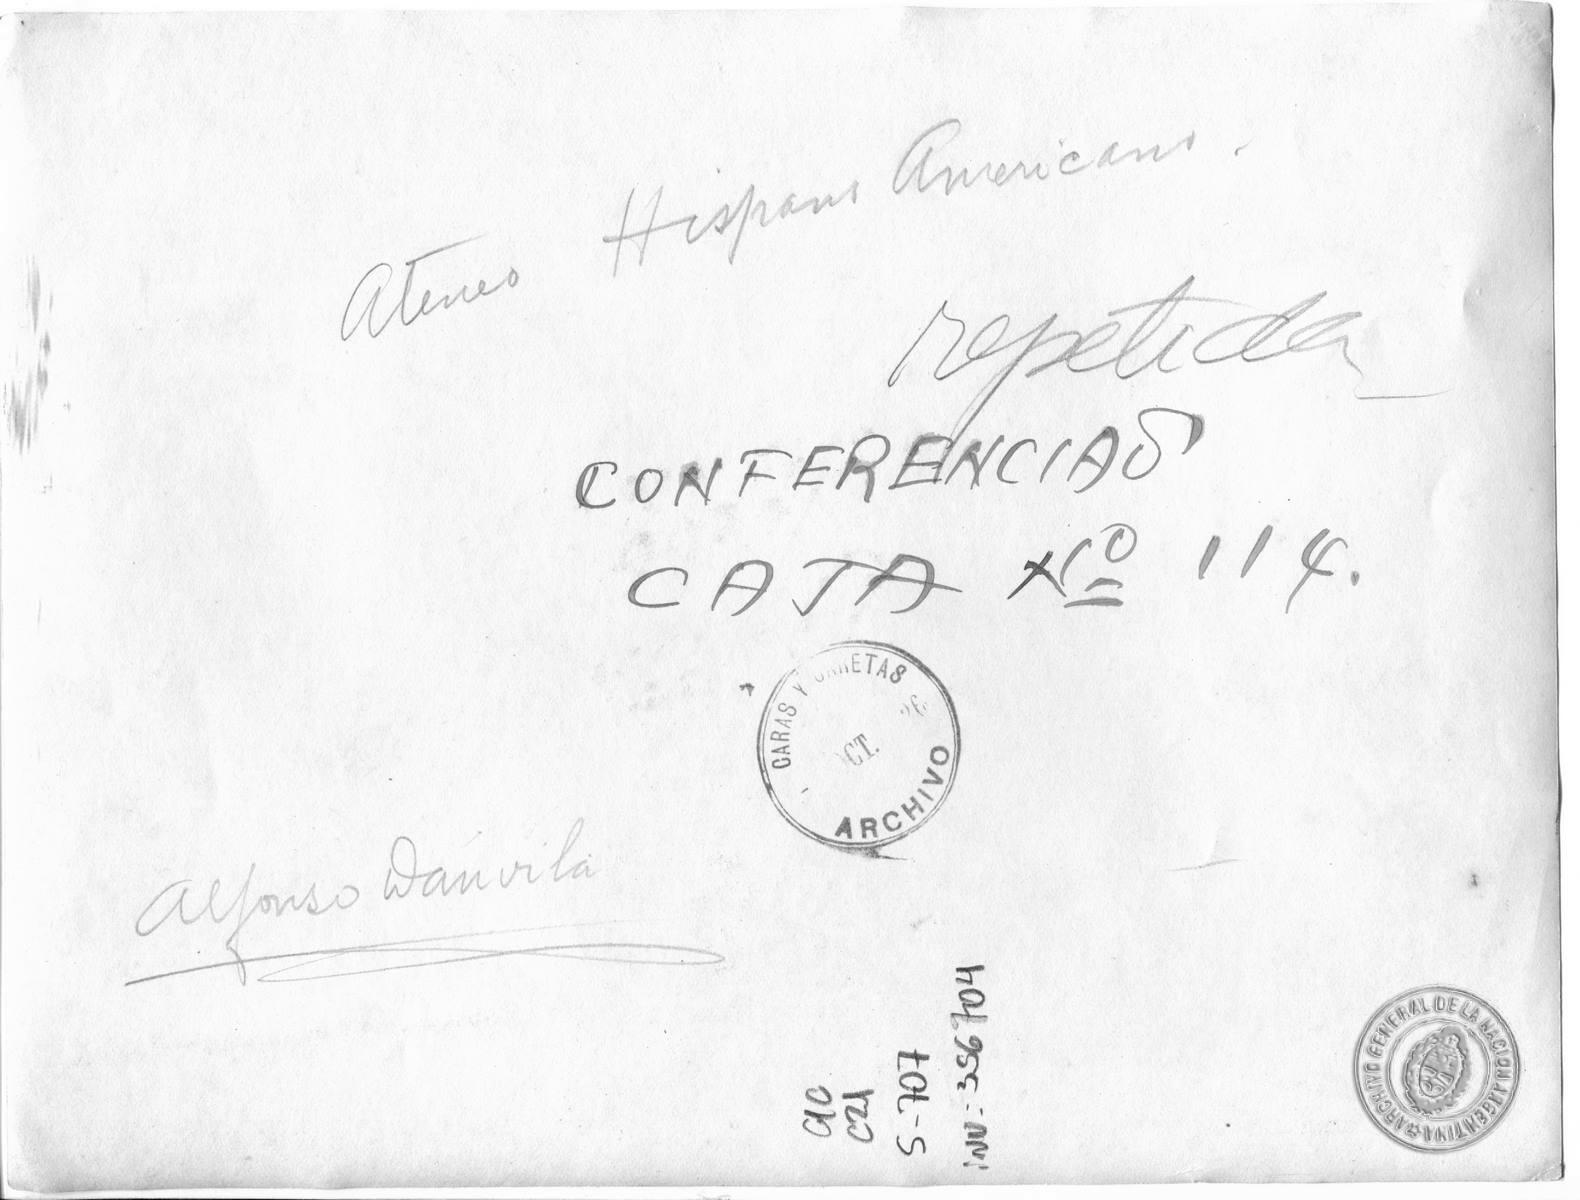 Ateneo Hispano Americano.
repetida
CONFERENCIAS
CAJA Nº 114.
CARAS Y CARETAS
OCT. 26
ARCHIVO
Alfonso Dánvila
C21
S-707
INV: 356704
ARCHIVO GENERAL DE LA NACION ARGENTINA